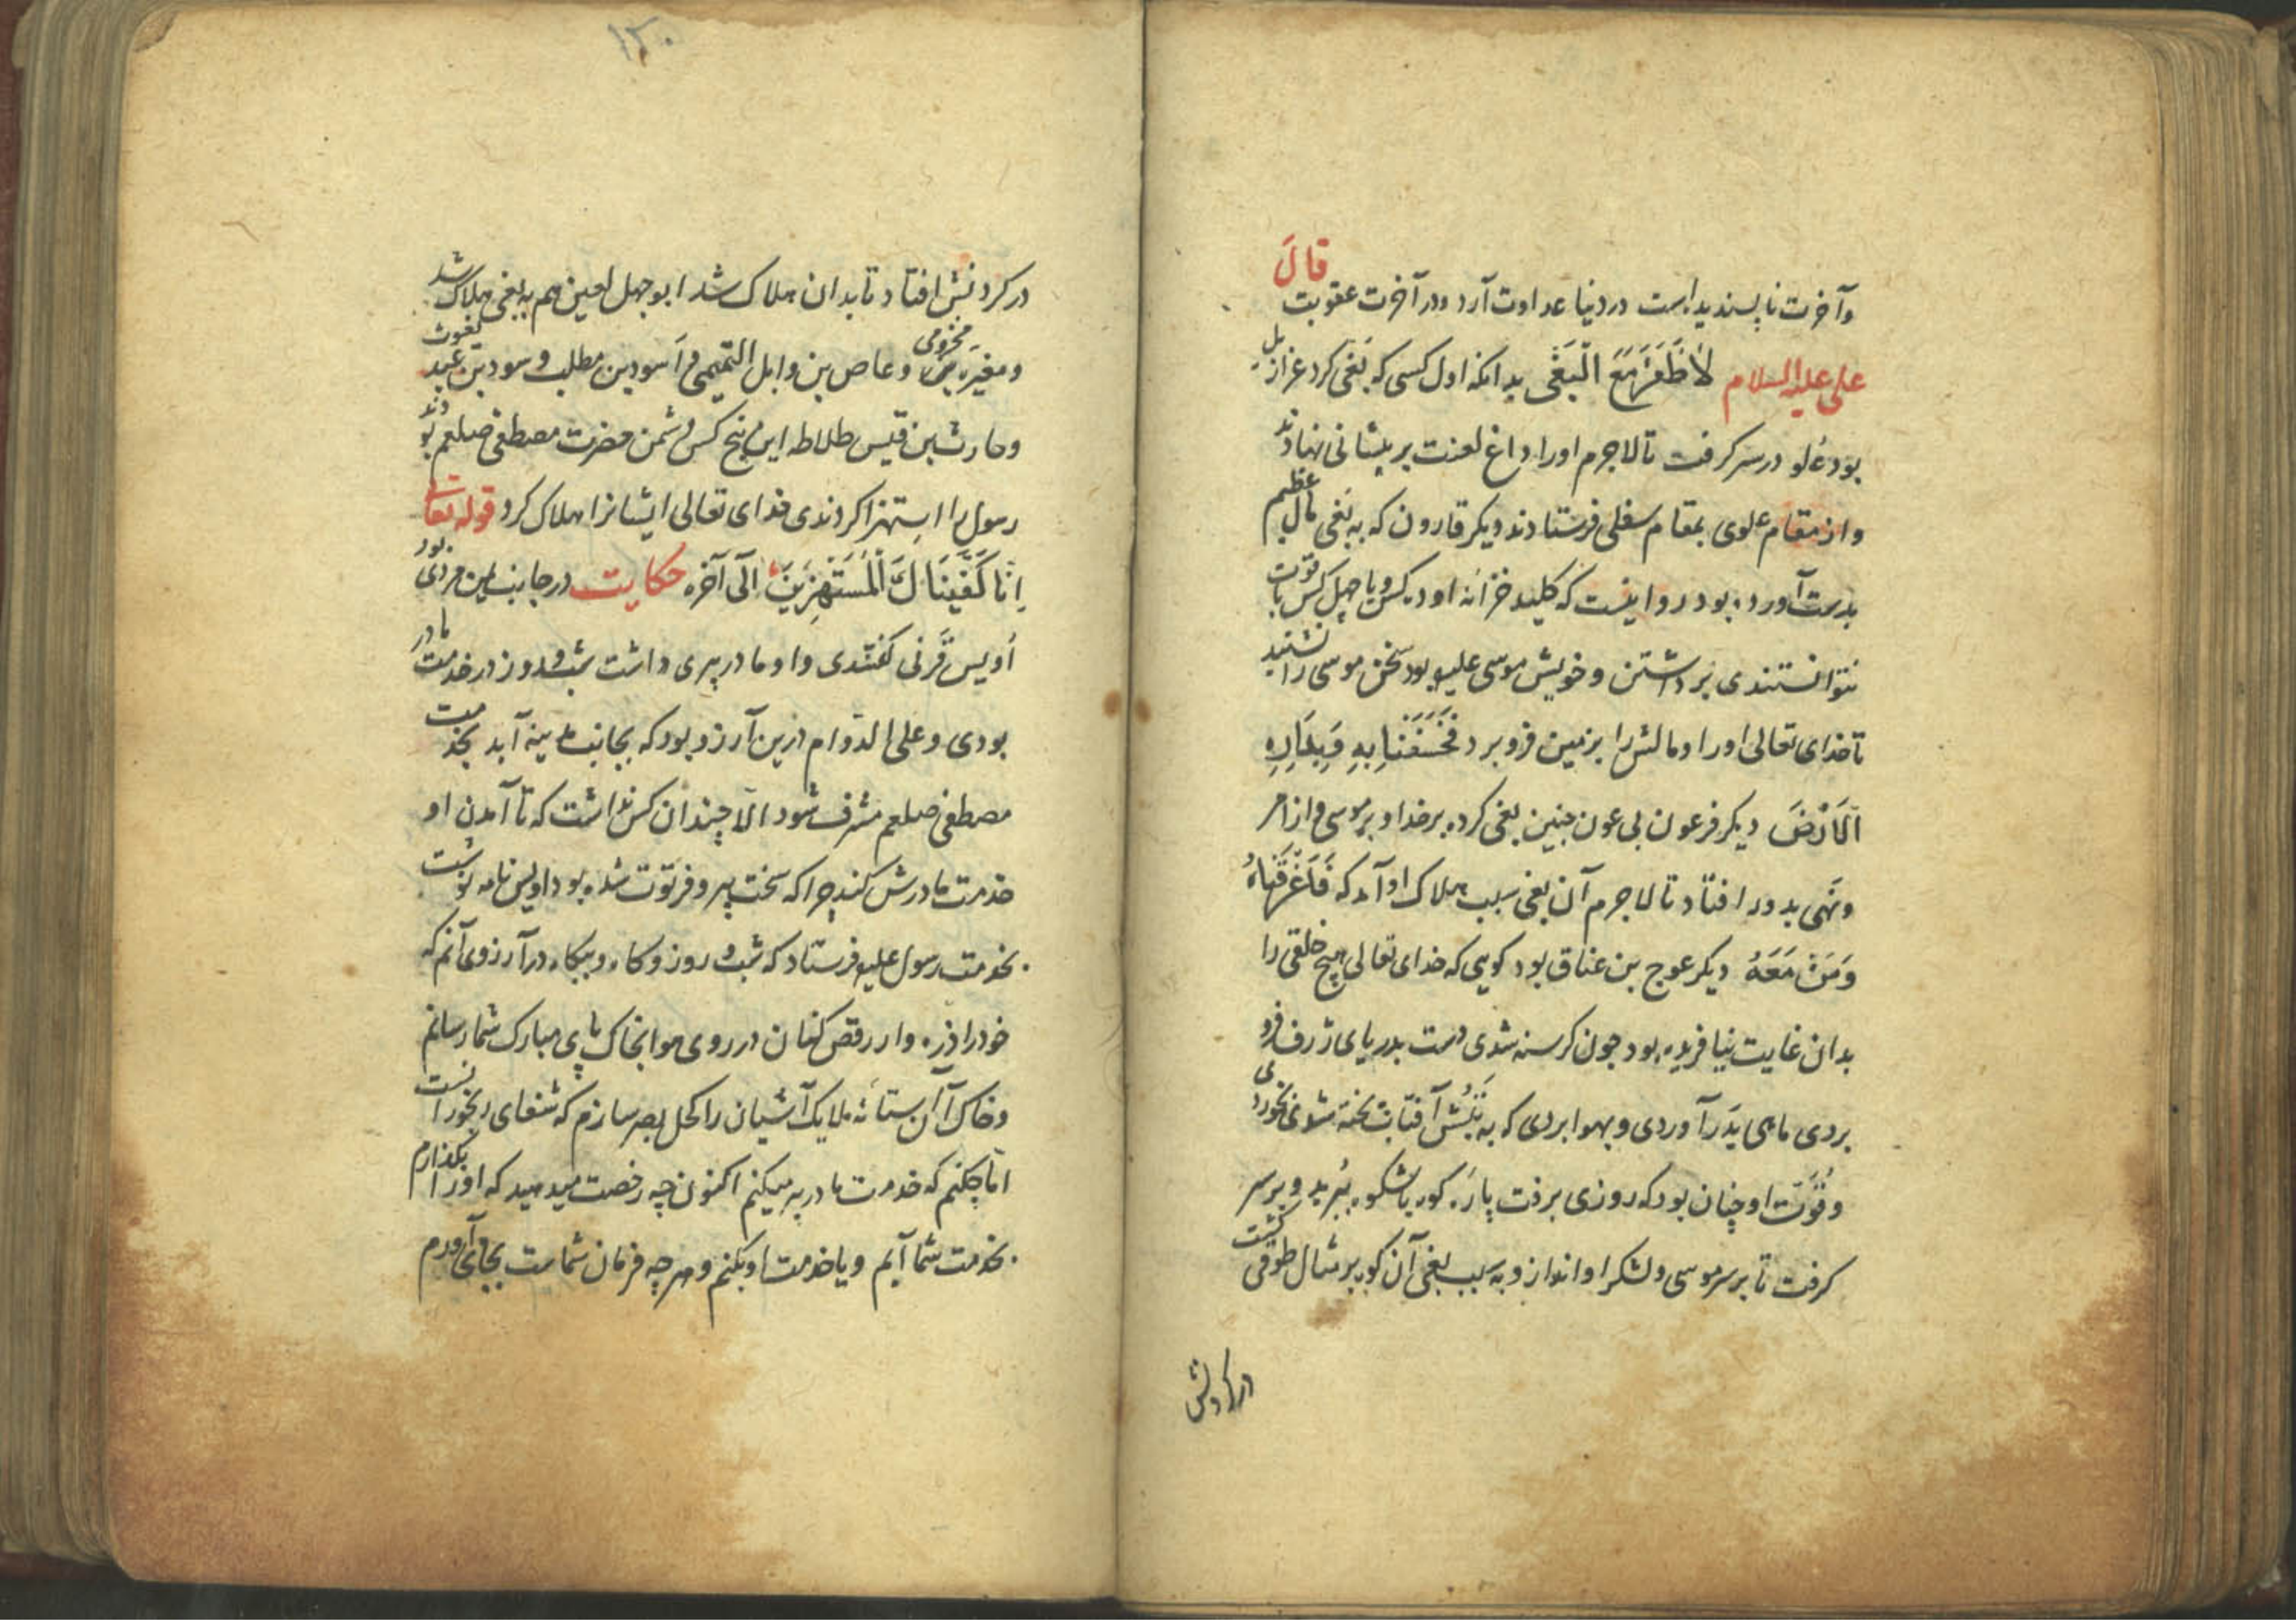 وآخرت ناپسندیده است در دنیا عداوت آرد ودر آخرت عقوبت قالَ
علی علیه السلام لاٰظَفَرَ مَعَ الْبَغْیِ بدانکه اول کسی که بَغی کرد عزازیل
بود عُلو در سر کرفت تا لاجرم اورا داغ لعنت بر پیشانی نهادند
واز مقام علوی بمقام سفلی فرستادند دیکر قارون که به بَغی مال عظیم
بدست آورده بود روایتست که کلید خزانه او دو کس ویا چهل کس با قوّت
نتوانستندی برداشتن وخویش موسی علیه بود سخن موسی را نشنید
تا خدای تعالی اورا ومالش را بزمین فرو برد فَخَسَفْنٰا بِهِ وَبِدٰارِهِ
الْاَرْضَ دیکر فرعون بی عون جنین بغی کرده بر خدا وبر موسی واز امر
ونَهی بدور افتاد تا لاجرم آن بغی سبب هلاک او آمد که فَاَغْرَقْنٰاهُ
وَمَنْ مَعَهُ دیکر عوج بن عناق بود کویی که خدای تعالی هیچ خلقی را
بدان غایت نیافریده بود جون کرسنه شدی دست بدریای ژرف فرو
بردی ماهی بَدَر آوردی وبهوا بردی که به تَبِش آفتاب پخته شدی بخوردی
وقُوَّت او چنان بود که روزی برفت پارَه کوه باشکوه بُبرید وبر سر
کرفت تا بر سر موسی ولشکر او اندازد به سبب بغی آن کوه بر مثال طوقی کشت
در کردنش
۱۳۰
در کردنش افتاد تا بدان هلاک شد ابو جهل لعین هم به بغی هلاک شد
ومغیره مخزومی وعاص بن وایل التمیمی واَسود بن مطلب وسود بن عبد یغوث
وحارث بن قیس طلاطه این پنج کس دشمن حضرت مصطفی صلعم بودند
رسول را استهزا کردندی خدای تعالی ایشانرا هلاک کرد قوله تعالی
اِنّٰا كَفَيْنٰاكَ الْمُسْتَهْزِئِينَ الی آخره حکایت در جانب یمن مردی بود
اُویس قَرنی کفتندی واو مادر پیری داشت شب وروز در خدمت مادر
بودی وعلی الدّوام درین آرزو بود که بجانب مدینه آید بخدمت
مصطفی صلعم مشرف شود الّا چندان کس نداشت که تا آمدن او
خدمت مادرش کند چرا که سخت پیر وفرتوت شده بود اویس نامه نوشت
بخدمت رسول علیه فرستاد که شب وروز وکاه وبیکاه در آرزوی آنم که
خودرا ذره وار رقص کنان در روی هوا بخاک پای مبارک شما رسانم
وخاک آن آستانه ملایک آشیان را کحل بصر سازم که شفای رنجور آنست
امّا چکنم که خدمت مادر پیر میکنم اکنون چه رخصت میدهید که اورا بکذارم
بخدمت شما آیم ویا خدمت او بکنم وهر چه فرمان شماست بجای آوردم